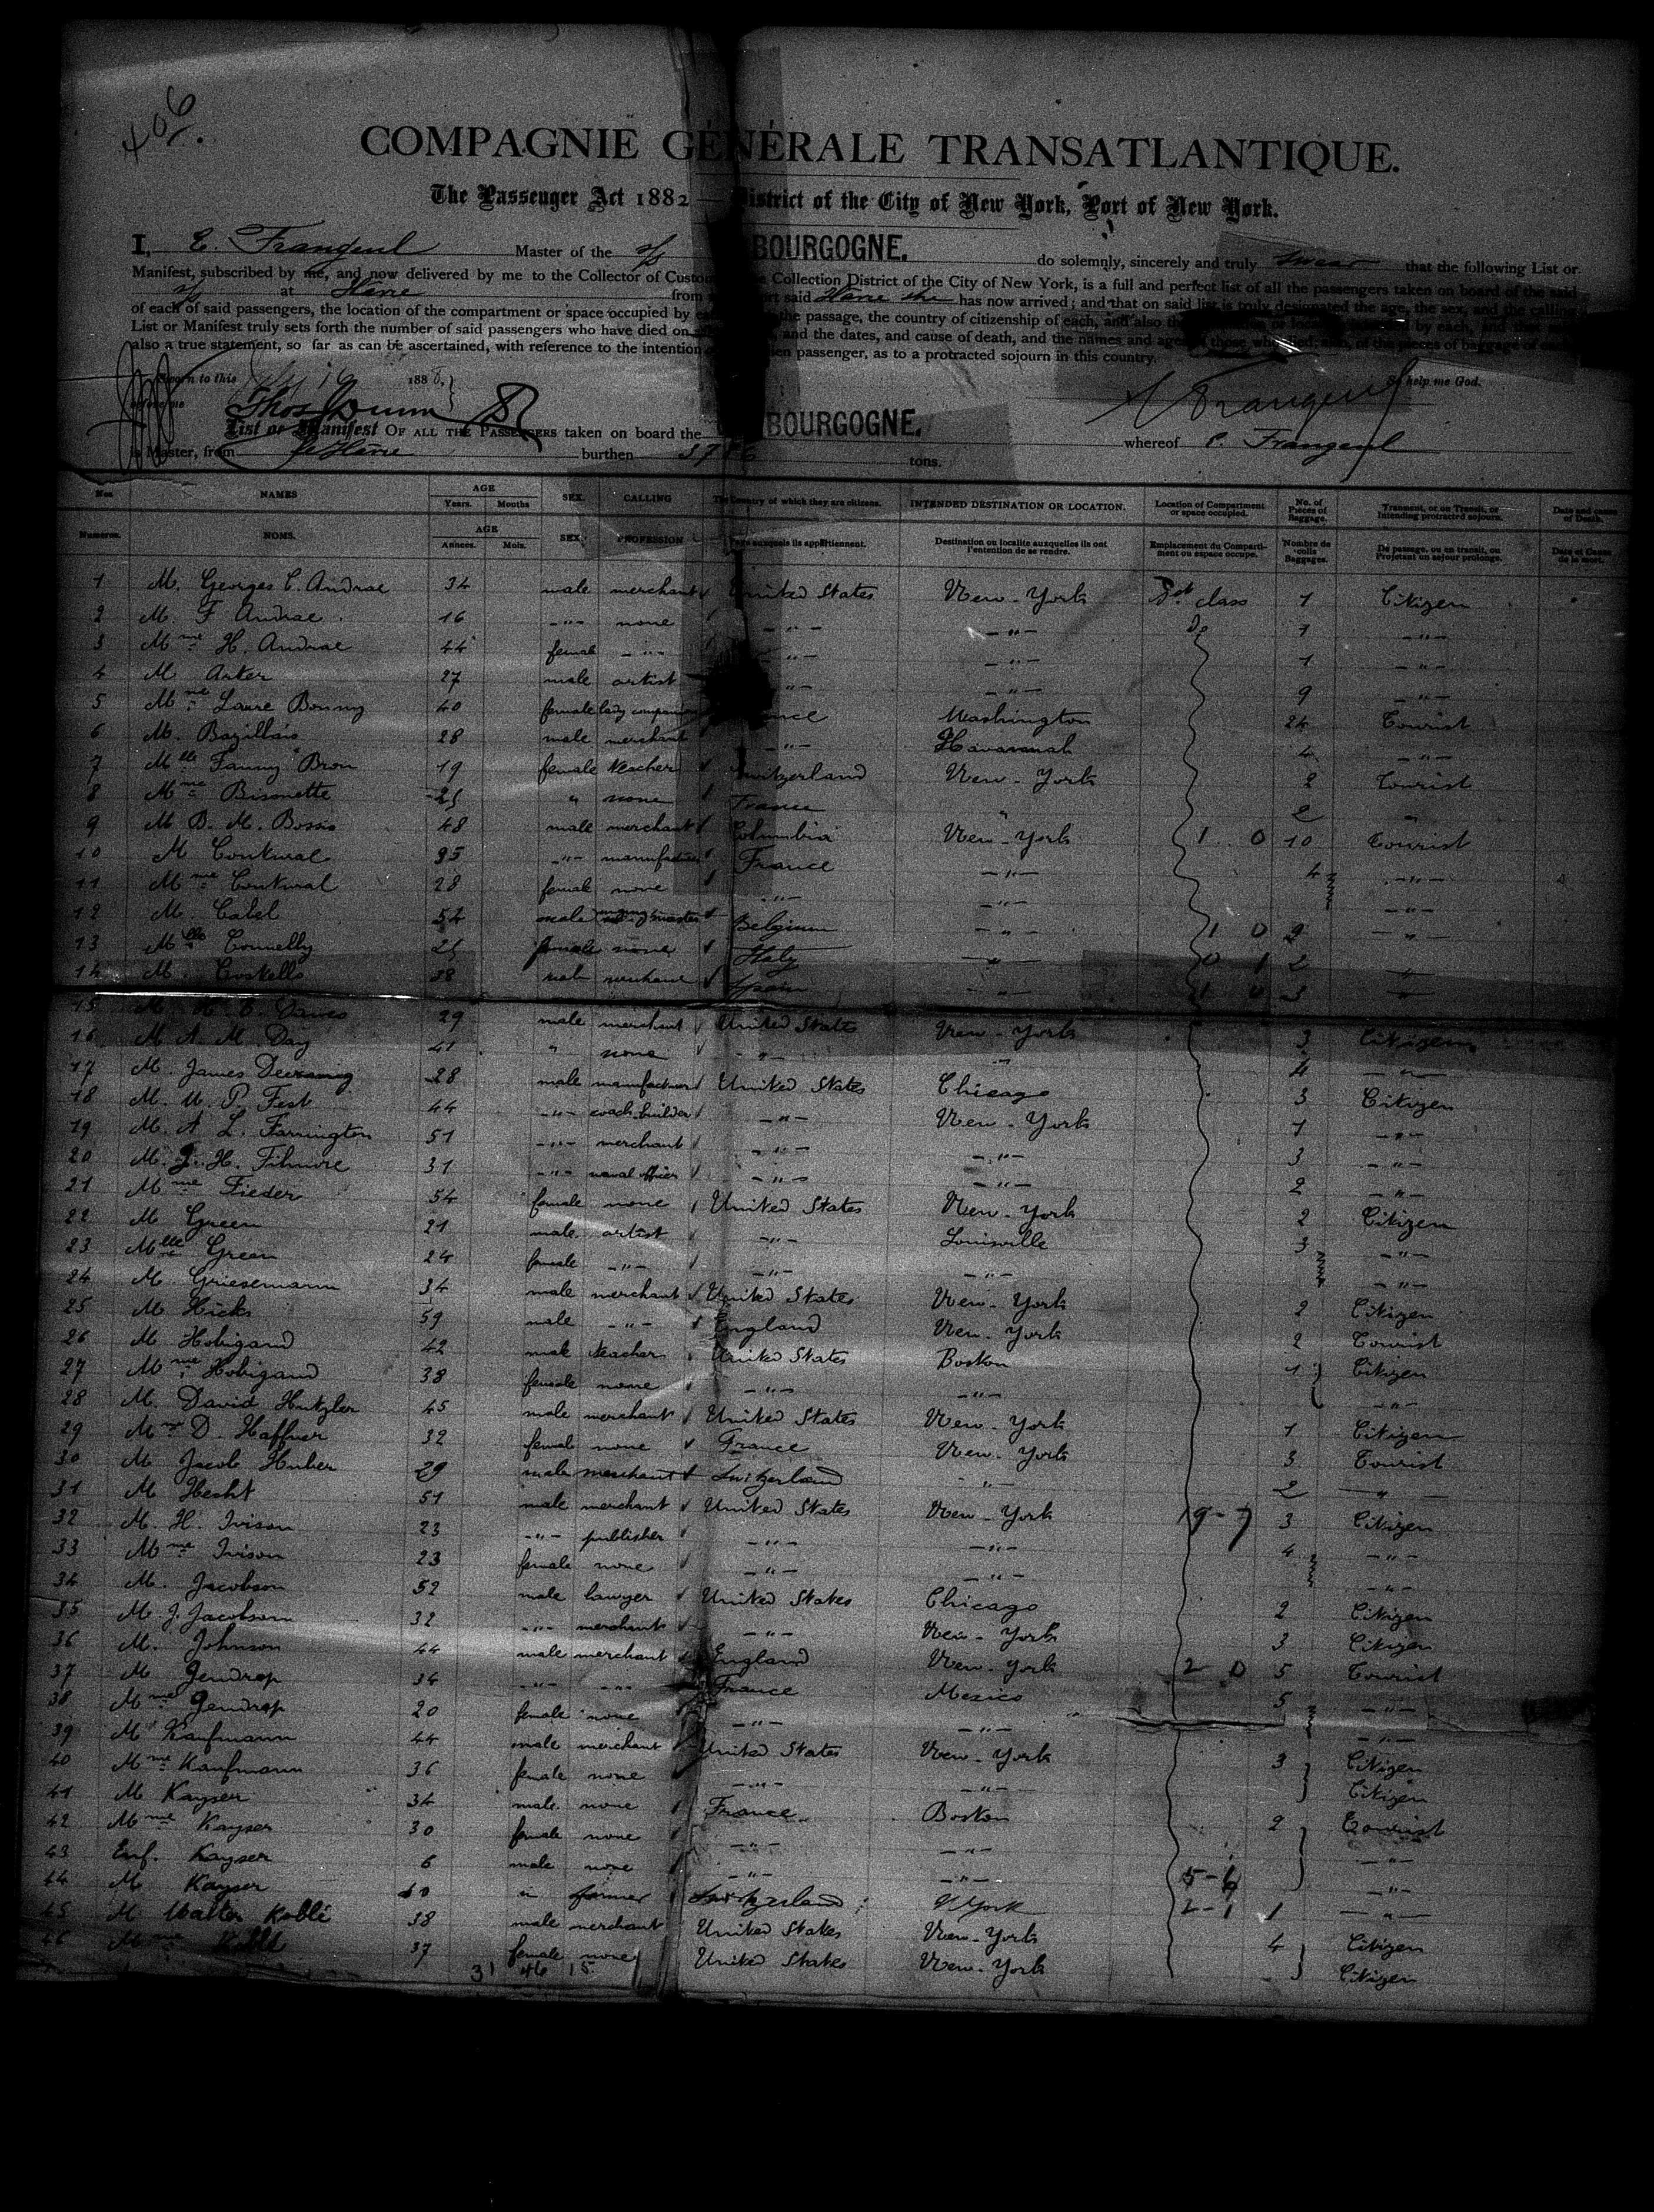 406.
COMPAGNIE GÉNÉRALE TRANSATLANTIQUE.
The Passenger Act 1882 — District of the City of New York, Port of New York.
I, E. Frangeul Master of the S/S BOURGOGNE. do solemnly, sincerely and truly swear that the following List or
Manifest, subscribed by me, and now delivered by me to the Collector of Customs Collection District of the City of New York, is a full and perfect list of all the passengers taken on board of the said
at Havre from port said Havre she has now arrived; and that on said list is truly designated the age, the sex, and the calling
of each of said passengers, the location of the compartment or space occupied by the passage, the country of citizenship of each, and also the by each, and that
List or Manifest truly sets forth the number of said passengers who have died on and the dates, and cause of death, and the names and ages of those who of the pieces of baggage of
also a true statement, so far as can be ascertained, with reference to the intention passenger, as to a protracted sojourn in this country.
Sworn to this 16 1888, So help me God.
before me Thos Dunn E Frangeul
List or Manifest OF ALL THE PASSENGERS taken on board the BOURGOGNE. whereof E. Frangeul
is Master, from Le Havre burthen tons.
Nos NAMES AGE Years. Months SEX. CALLING The Country of which they are citizens. INTENDED DESTINATION OR LOCATION. Location of Compartment or space occupied. No. of Pieces of Baggage. Transient, or on Transit, or Intending protracted sojourn. Date and cause of Death.
Numeros. NOMS. AGE Années. Mois. SEX. PROFESSION Pays auxquels ils appartiennent. Destination ou localite auxquelles ils ont l'entention de se rendre. Emplacement du Comparti-ment ou espace occupe. Nombre de colis Baggages. De passage, ou en transit, ou Projetant un sejour prolonge. Date et Cause de la mort.
1 M. Georges C. Andrae 34 male merchant United States New-York 1st class 1 Citizen
2 M F Andrae 16 -"- none -"- -"- do 1 -"-
3 Mme H. Andrae 44 female -"- -"- -"- 1 -"-
4 M Arker 27 male artist -"- -"- 9 -"-
5 Mme Laure Bonny 40 female lady companion France Washington 24 Tourist
6 M. Bazillais 28 male merchant -"- Havannah 4 -"-
7 Mlle Fanny Bron 19 female teacher Switzerland New-York 2 Tourist
8 Mme Bisonette 25 " none France " 2 "
9 M B. M. Bossio 48 male merchant Columbia New-York 1 0 10 Tourist
10 M Contural 35 -"- manufacturer France -"- 4 -"-
11 Mme Contural 28 female none -"- -"- -"-
12 M. Catel 54 male Belgium -"- 1 0 2 -"-
13 Mlle Connelly 25 female none Italy -"- 0 1 2 "
14 M. Coskells 38 male merchant Spain -"- 1 0 3 "
15 M. Davies 29 male merchant United States New-York 3 Citizen
16 M A. M. Day 41 " none -"- -"- 4 -"-
17 M. James Deering 28 male manufacturer United States Chicago 3 Citizen
18 M. U. P. Fest 44 -"- coach builder -"- New-York 1 -"-
19 M. A. L. Farrington 51 -"- merchant -"- -"- 3 -"-
20 M. J. H. Filmore 31 -"- naval officer -"- -"- 2 -"-
21 Mme Fieder 54 female none United States New-York 2 Citizen
22 M Green 21 male artist -"- Louisville 3 -"-
23 Mlle Green 24 female -"- -"- -"- -"-
24 M. Griesemann 34 male merchant United States New-York 2 Citizen
25 M Hicks 59 male -"- England New-York 2 Tourist
26 M Hobigand 42 male teacher United States Boston 1 Citizen
27 Mme Hobigand 38 female none -"- -"- -"-
28 M. David Hutzler 45 male merchant United States New-York 1 Citizen
29 Mme D. Haffner 32 female none France New-York 3 Tourist
30 M Jacob Huber 29 male merchant Switzerland " 2 -"-
31 M Hecht 51 male merchant United States New-York 19-7 3 Citizen
32 M. H. Ivison 23 -"- publisher -"- -"- 4 -"-
33 Mme Ivison 23 female none -"- -"- -"-
34 M. Jacobson 52 male lawyer United States Chicago 2 Citizen
35 M. J. Jacobson 32 -"- merchant -"- New-York 3 Citizen
36 M. Johnson 44 male merchant England New-York 2 0 5 Tourist
37 M Gendrop 34 -"- -"- France Mexico 5 -"-
38 Mme Gendrop 20 female none -"- -"- -"-
39 M Kaufmann 44 male merchant United States New-York 3 Citizen
40 Mme Kaufmann 36 female none -"- -"- Citizen
41 M Kayser 34 male none France Boston 2 Tourist
42 Mme Kayser 30 female none -"- -"- -"-
43 Enf. Kayser 6 male none -"- -"- 5-6 -"-
44 M Kayser 40 " farmer Switzerland N York 2-1 1 -"-
45 M Walter Kobbé 38 male merchant United States New-York 4 Citizen
46 Mme Kobbé 37 female none United States New-York Citizen
31 46 15